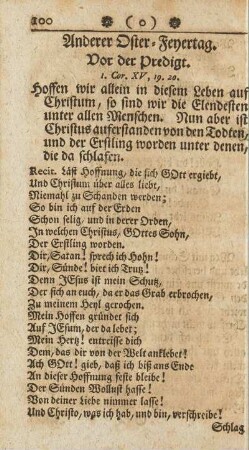 100 ❀ ( o ) ❀
Anderer Oster-Feyertag.
Vor der Predigt.
1. Cor. XV, 19. 20.
Hoffen wir allein in diesem Leben auf
Christum, so sind wir die Elendesten
unter allen Menschen. Nun aber ist
Christus auferstanden von den Todten,
und der Erstling worden unter denen,
die da schlafen.
Recit. Läst Hoffnung, die sich GOtt ergiebt,
Und Christum über alles liebt,
Niemahl zu Schanden werden;
So bin ich auf der Erden
Schon selig, und in derer Orden,
In welchen Christus, GOttes Sohn,
Der Erstling worden.
Dir, Satan! sprech ich Hohn!
Dir, Sünde! biet ich Trutz!
Denn JEsus ist mein Schutz,
Der sich an euch, da er das Grab erbrochen,
Zu meinem Heyl gerochen.
Mein Hoffen gründet sich
Auf JEsum, der da lebet;
Mein Hertz! entreisse dich
Dem, das dir von der Welt anklebet!
Ach GOtt! gieb, daß ich biß ans Ende
An dieser Hoffnung feste bleibe!
Der Sünden Wollust hasse!
Von deiner Liebe nimmer lasse!
Und Christo, was ich hab, und bin, verschreibe!
Schlag